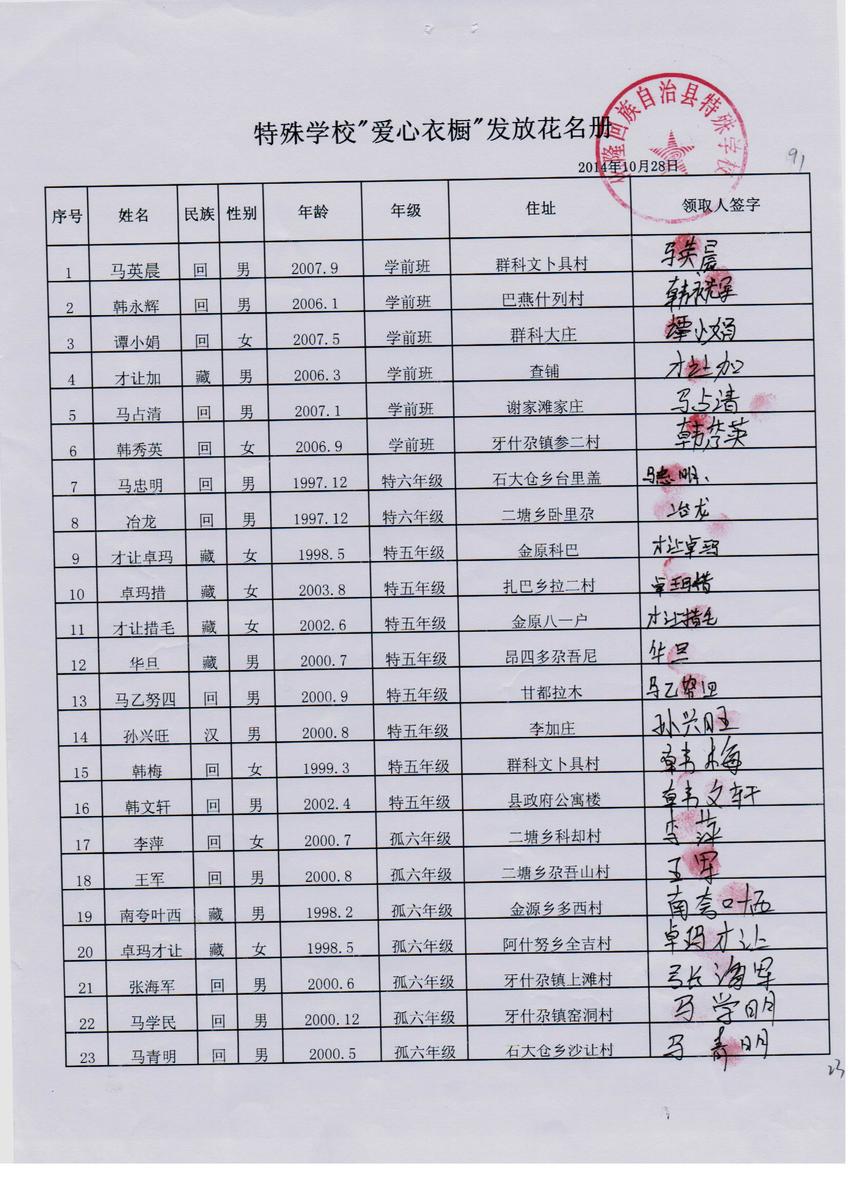 特殊学校"爱心衣橱"发放花名册
隆回族自治县特殊学校
2014年10月28日
91
序号 姓名 民族 性别 年龄 年级 住址 领取人签字
1 马英晨 回 男 2007.9 学前班 群科文卜具村 马英晨
2 韩永辉 回 男 2006.1 学前班 巴燕什列村 韩永辉
3 谭小娟 回 女 2007.5 学前班 群科大庄 谭小娟
4 才让加 藏 男 2006.3 学前班 查铺 才让加
5 马占清 回 男 2007.1 学前班 谢家滩家庄 马占清
6 韩秀英 回 女 2006.9 学前班 牙什尕镇参二村 韩秀英
7 马忠明 回 男 1997.12 特六年级 石大仓乡台里盖 马忠明、
8 冶龙 回 男 1997.12 特六年级 二塘乡卧里尕 冶龙
9 才让卓玛 藏 女 1998.5 特五年级 金原科巴 才让卓玛
10 卓玛措 藏 女 2003.8 特五年级 扎巴乡拉二村 卓玛措
11 才让措毛 藏 女 2002.6 特五年级 金原八一户 才让措毛
12 华旦 藏 男 2000.7 特五年级 昂四多尕吾尼 华旦
13 马乙努四 回 男 2000.9 特五年级 甘都拉木 马乙努四
14 孙兴旺 汉 男 2000.8 特五年级 李加庄 孙兴旺
15 韩梅 回 女 1999.3 特五年级 群科文卜具村 韩梅
16 韩文轩 回 男 2002.4 特五年级 县政府公寓楼 韩文轩
17 李萍 回 女 2000.7 孤六年级 二塘乡科却村 李萍
18 王军 回 男 2000.8 孤六年级 二塘乡尕吾山村 王军
19 南夸叶西 藏 男 1998.2 孤六年级 金源乡多西村 南夸叶西
20 卓玛才让 藏 女 1998.5 孤六年级 阿什努乡全吉村 卓玛才让
21 张海军 回 男 2000.6 孤六年级 牙什尕镇上滩村 张海军
22 马学民 回 男 2000.12 孤六年级 牙什尕镇窑洞村 马学明
23 马青明 回 男 2000.5 孤六年级 石大仓乡沙让村 马青明
23